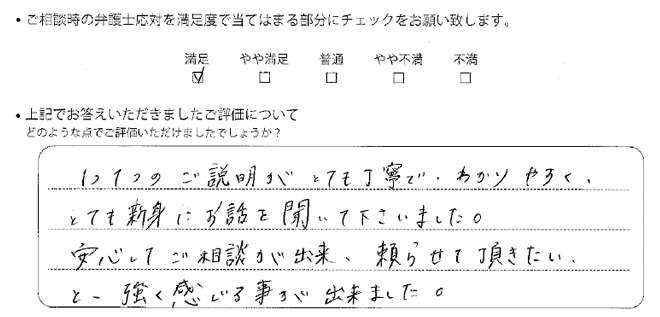 ・ご相談時の弁護士応対を満足度で当てはまる部分にチェックをお願い致します。
満足 やや満足 普通 やや不満 不満
・上記でお答えいただきましたご評価について
どのような点でご評価いただけましたでしょうか？
1つ1つのご説明がとても丁寧で、わかりやすく、
とても新身にお話を聞いて下さいました。
安心してご相談が出来、頼らせて頂きたい、
と一強く感じる事が出来ました。